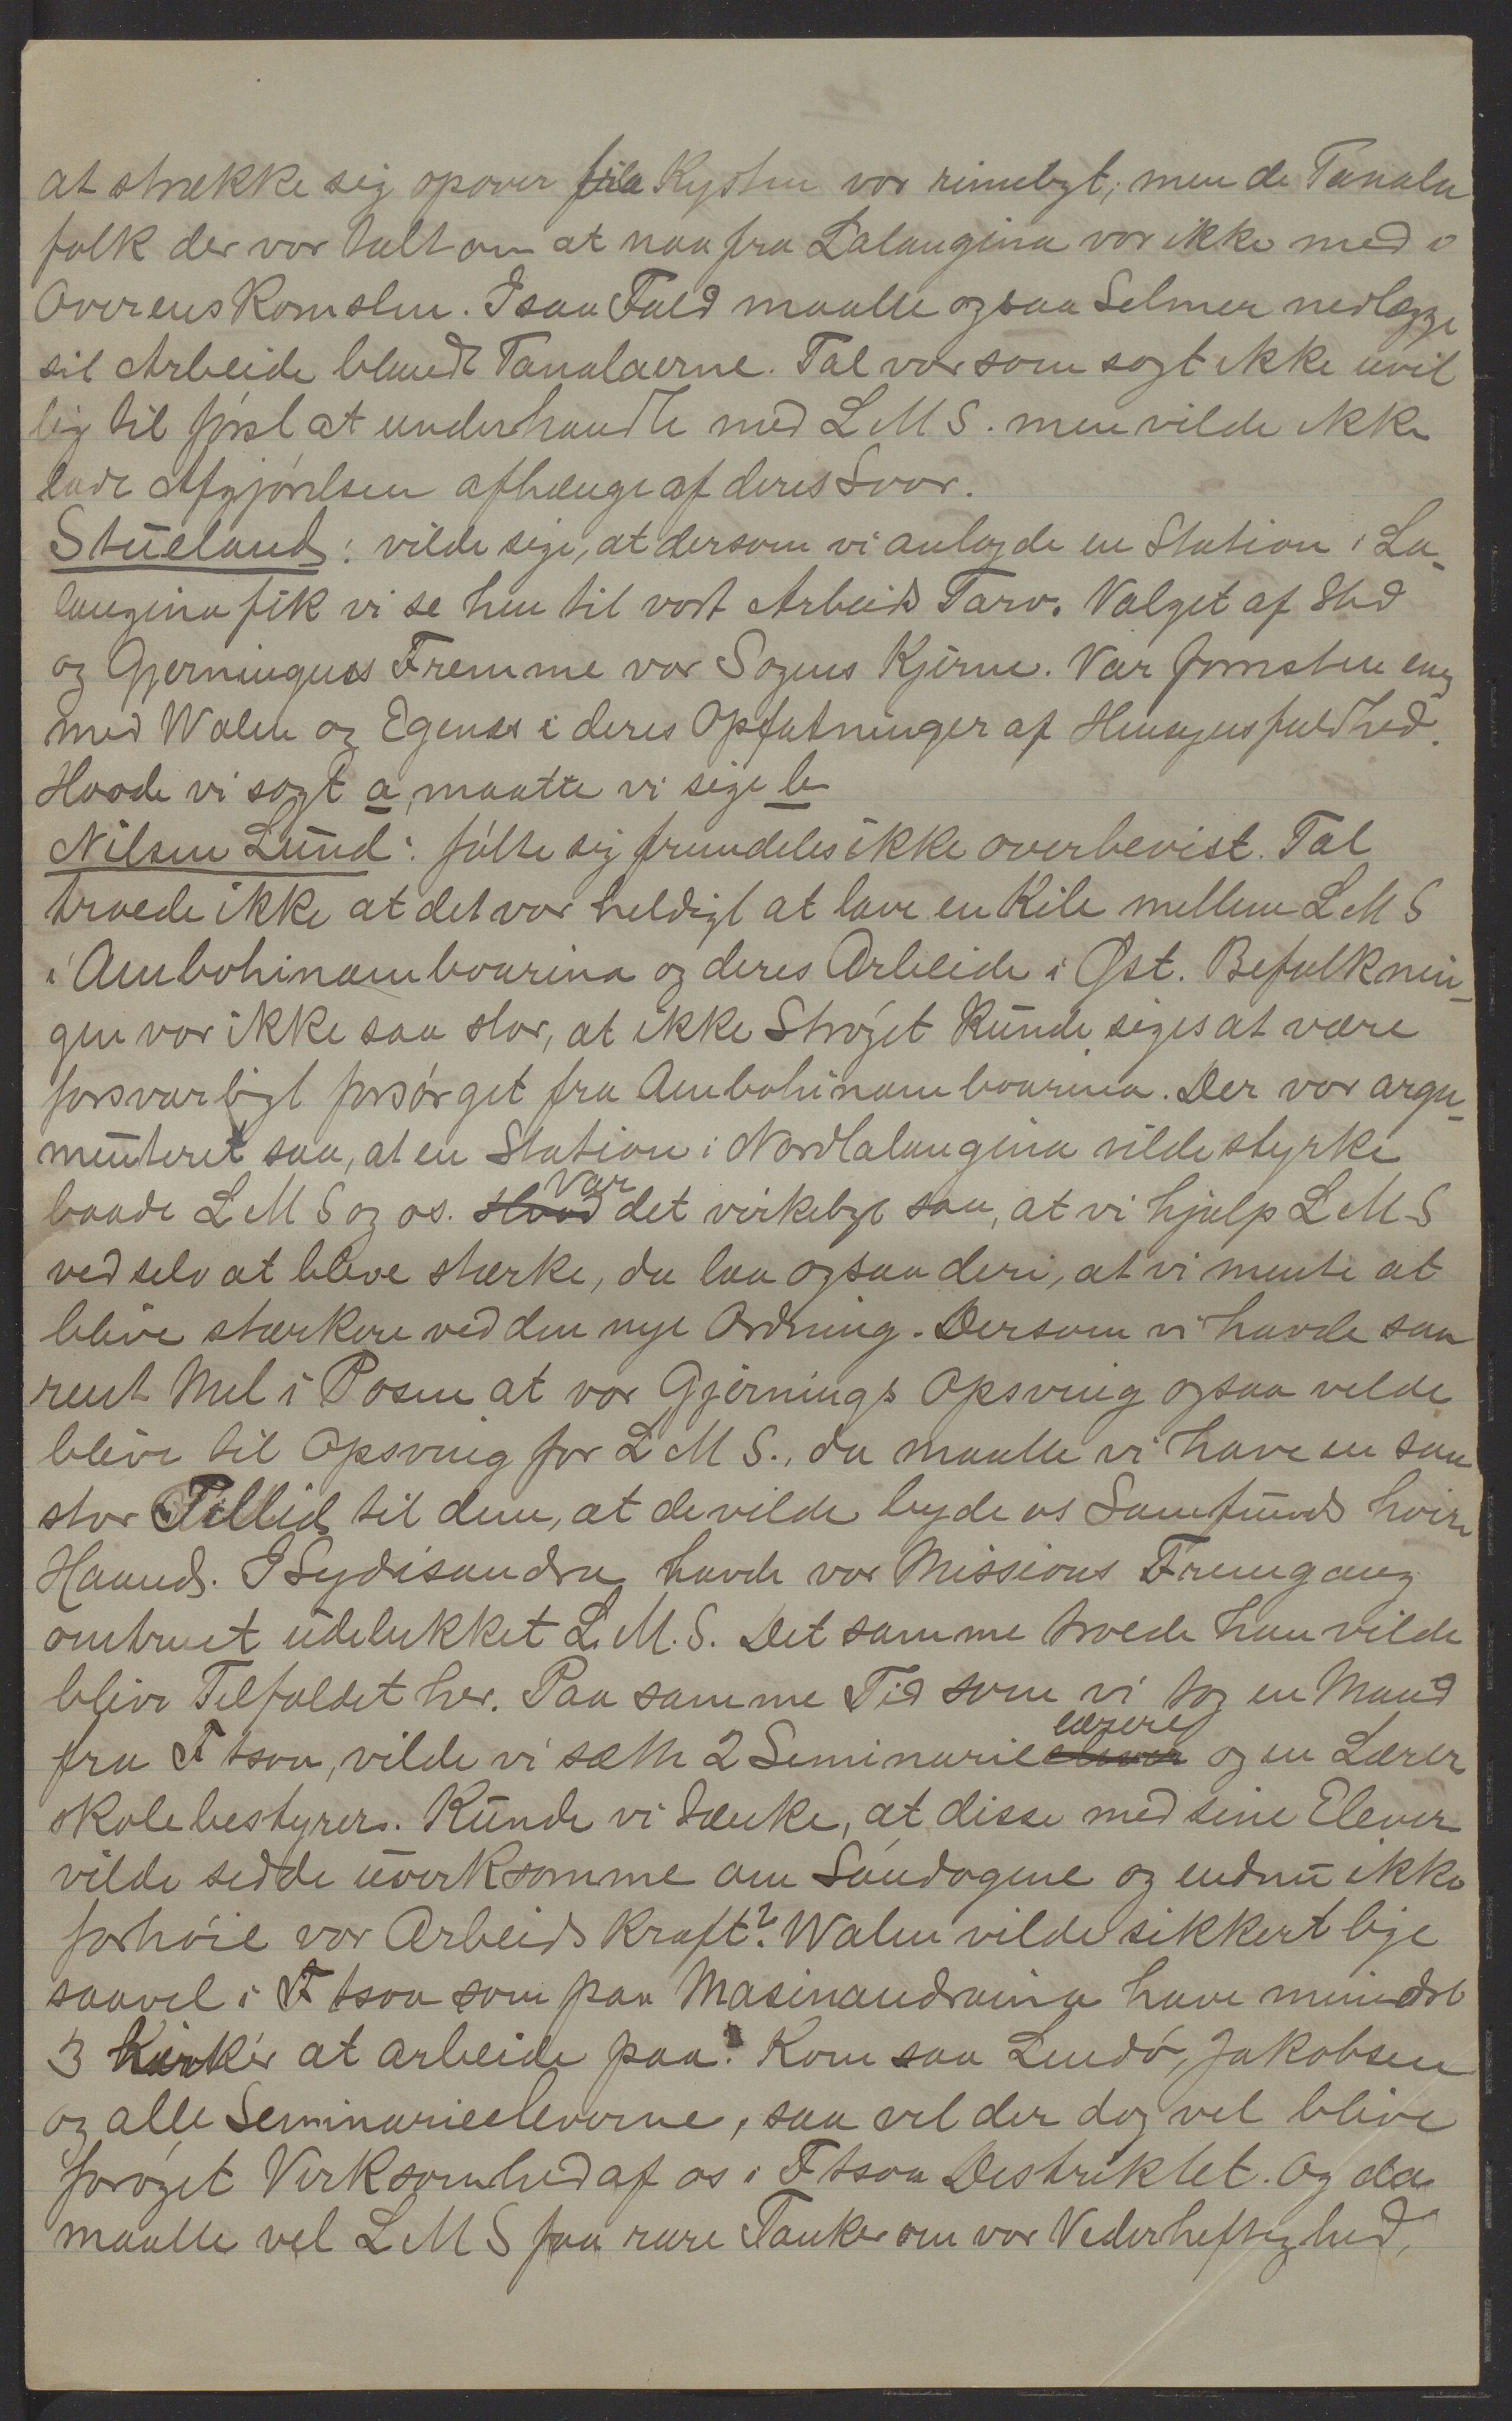 at strække sig opover fra Kysten var rimeligt; men de Tanala
folk der var talt om at naa fra Lalangina var ikke med i
Overenskomsten. I saa Fald maatte ogsaa Selmer nedlægge
sit Arbeide blandt Tanalaerne. Tal. var som sagt ikke uvil
lig til først at underhandle med L M S. men vilde ikke
lade Afgjørelsen afhænge af deres Svar.
Stueland: vilde sige, at dersom vi anlagde en Station i La-
langina fik vi se hen til vort Arbeids Tarv. Valget af Sted
og Gjerningens Fremme var Sagens Kjerne. Var forresten enig
med Walen og Egenæs i deres Opfatninger af Hensynsfuldhed.
Havde vi sagt a, maatte vi sige b
Nilsen Lund: følte sig fremdeles ikke overbevist. Tal.
troede ikke at det var heldigt at lave en Kile mellem L M S
i Ambohinamboarina og deres Arbeide i Øst. Befolknin-
gen var ikke saa stor, at ikke Strøget kunde siges at være
forsvarligt forsørget fra Ambohinamboarina. Der var argu-
menteret saa, at en Station i Nordlalangina vilde styrke
baade L M S og os. Var det virkeligt saa, at vi hjalp L M S
ved selv at blive stærke, da laa ogsaa deri, at vi mente at
blive stærkere ved den nye Ordning. Dersom vi havde saa
rent Mel i Posen at vor Gjernings Opsving ogsaa vilde
blive til Opsving for L M S., da maatte vi have en saa
stor Tillid til dem, at de vilde byde os Samfunds høire
Haand. I Sydisandra havde vor Missions Fremgang
omtrent udelukket L. M. S. Det samme troede han vilde
blive Tilfældet her. Paa samme Tid som vi tog en Mand
fra F tsoa, vilde vi sætte 2 Seminarielærere og en Lærer
skolebestyrer. Kunde vi tænke, at disse med sine Elever
vilde sidde uvirksomme om Søndagene og endnu ikke
forhøie vor Arbeidskraft? Walen vilde sikkert lige
saavel i F tsoa som paa Masinandraina have mindst
3 Kirker at arbeide paa. Kom saa Lindø, Jakobsen
og alle Seminarieeleverne, saa vil der dog vel blive
forøget Virksomhed af os i F tsoa Distriktet. Og da
maatte vel L M S faa rare Tanker om vor Vederheftighed,